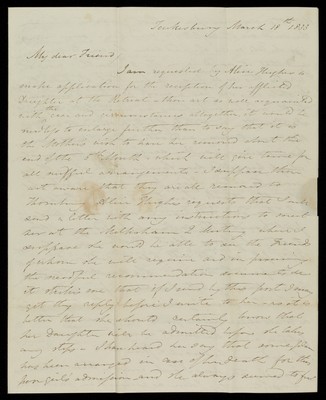 Tewkesbury March 18th 1833
My dear Friend,
I am requested by Alice Hughes to
make application for the reception of her afflicted
Daughter at the Retreat - thou art so well acquainted
with the case and circumstances altogether it would be
needless to enlarge further than to say that it is
the Mothers wish to have her removed about the
end of the 4th Month - which will give time for
all needful arrangements - I suppose thou
art aware that they are all removed to
Thornbury. Alice Hughes requests that I would
send a letter with any instruction to meet
her at the Melksham Q Meeting where I
suppose she would be able to see the Friends
of whom she will require aid in procuring
the needful recommendation
it strikes me that if I send by this post I may
get thy reply before I write to her - as it is
better that she should certainly know that
her daughter will be admitted before she takes
any steps - I have heard her say that some plan
has been arranged in case of her death for the
poor girls admission and she always seemed to feel